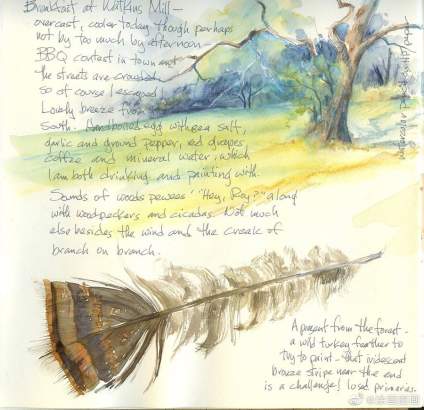 Breakfast at Watkins Mill -
overcast, cooler today though perhaps
not by too much by afternoon -
BBQ contest in town and
the streets are crowded,
so of course I escaped!
Lovely breeze from
South. Hardboiled egg with sea salt,
garlic and ground pepper, red grapes,
coffee and mineral water, which
I am both drinking and painting with.
Sounds of woods pewees "Hey, Roy?" along
with woodpeckers and cicadas. Not much
else besides the wind and the creak of
branch on branch.
A present from the forest -
a wild turkey feather to
try to paint - that iridescent
bronze stripe near the end
is a challenge! I used primaries.